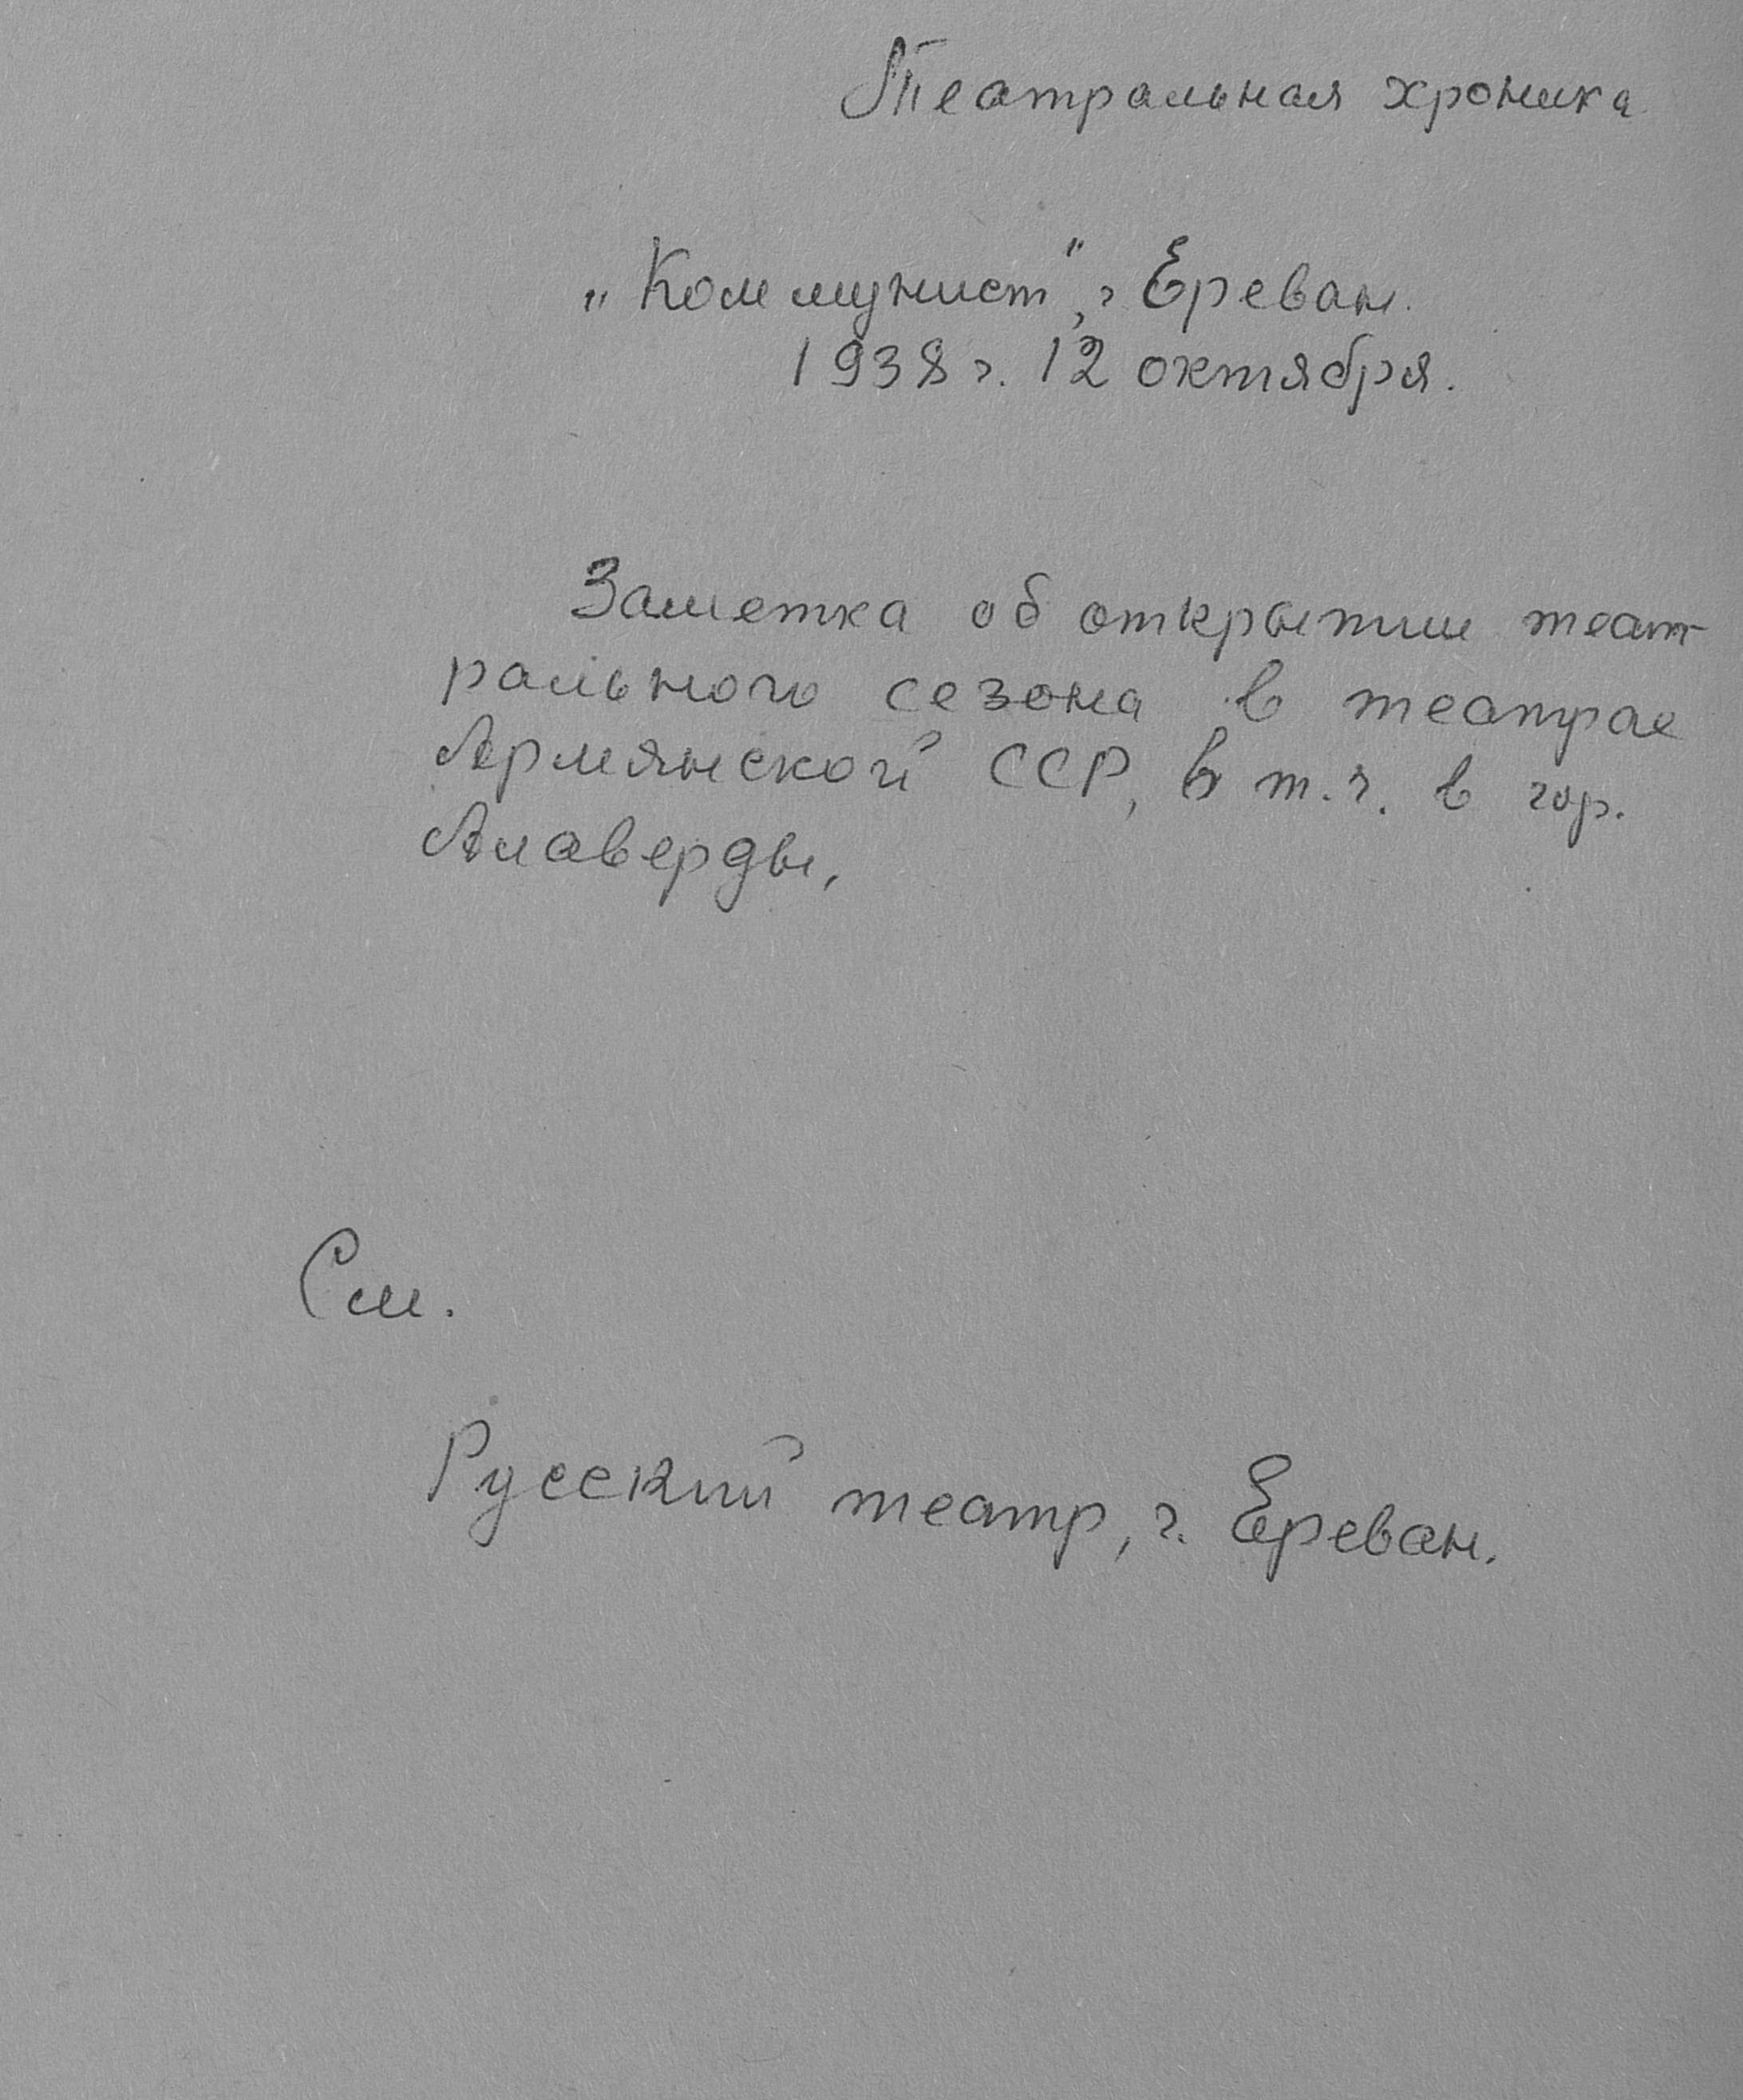 Театральная хроника
„Коммунист", г Ереван.
1938 г. 12 октября.
Заметка об открытии теат-
рального сезона в театрах
Армянской ССР, в т.ч. в гор.
Алаверды,
См.
Русский театр, г. Ереван.